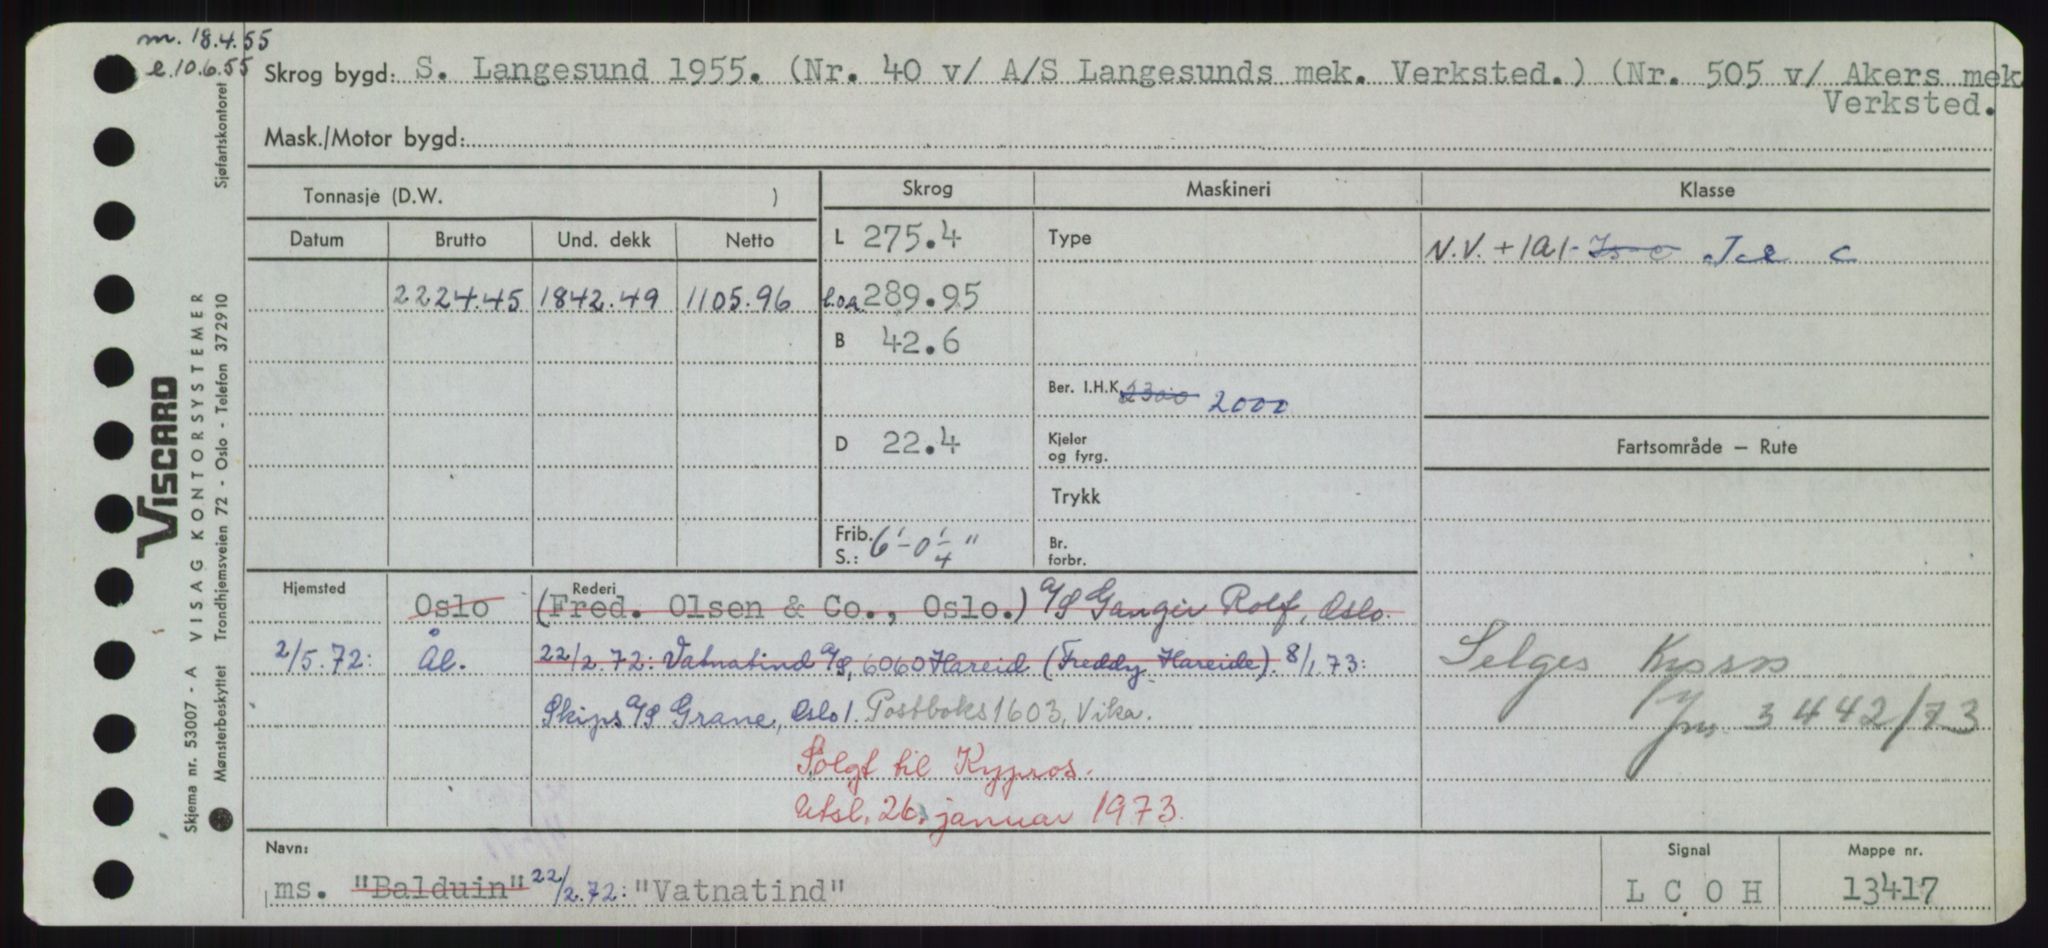 m. 18.4.55
e. 10.6.55
Skrog bygd: S. Langesund 1955. (Nr. 40 v/ A/S Langesunds mek. Verksted.) (Nr. 505 v/ Akers mek
Verksted.
Mask./Motor bygd:
Tonnasje (D.W. )
Skrog
Maskineri
Klasse
Datum
Brutto
Und. dekk
Netto
L 275.4
Type
N.V. + 1A1- Ice C
2224.45
1842.49
1105.96
l.o.a. 289.95
B 42.6
Ber. I.H.K. 2300 2000
D 22.4
Kjeler
og fyrg.
Fartsområde — Rute
Trykk
Frib.
S.: 6'-0 1/4"
Br.
forbr.
Hjemsted
Rederi
Oslo
(Fred. Olsen & Co., Oslo.) A/S Ganger Rolf, Oslo.
2/5.72:
Ål.
22/2.72: Vatnatind A/S, 6060 Hareid (Freddy Hareide). 8/1.73:
Skips A/S Grane, Oslo 1. Postboks 1603, Vika.
Selges Kypros
Jnr. 3442/73
Solgt til Kypros.
Utsl. 26. januar 1973.
Navn:
ms. "Balduin" 22/2.72: "Vatnatind"
Signal
L C O H
Mappe nr.
13417
Sjøfartskontoret
VISCARD
Skjema nr. 53007 - A VISAG KONTORSYSTEMER
Mønsterbeskyttet Trondhjemsveien 72 - Oslo - Telefon 372910